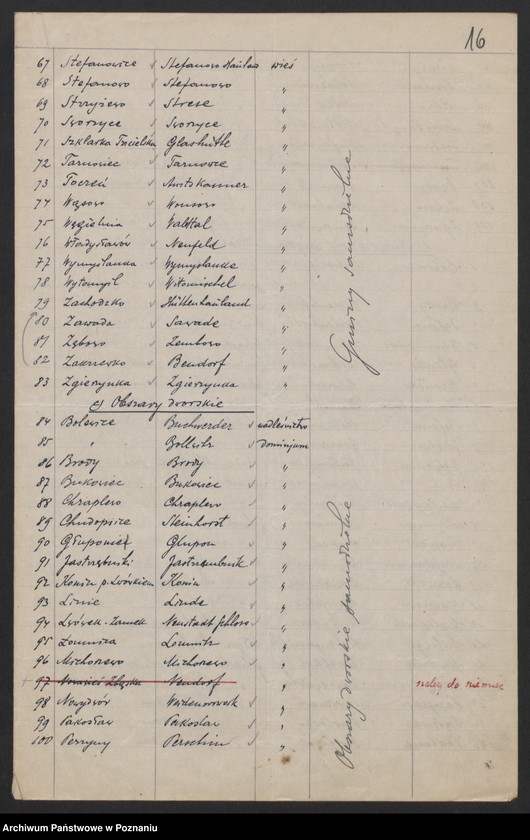 16
67 Stefanowice Stefanowo Hauland wieś
68 Stefanowo Stefanowo "
69 Strzyżewo Strese "
70 Sworzyce Sworzyce "
71 Szklarka Trzcielska Glashütte "
72 Tarnowiec Tarnowce "
73 Toczeń Amtskammer "
74 Wąsowo Wonsowo "
75 Węgielnia Waldtal "
76 Władysławów Neufeld "
77 Wymyślanka Wymyslanke "
78 Wytomyśl Witomischel "
79 Zachodzko Hüttenhauland "
80 Zawada Sawade "
81 Zębowo Zembowo "
82 Zakrzewko Bendorf "
83 Zgierzynka Zgierzynka "
Gminy samodzielne
c) Obszary dworskie
84 Bolewice Buchwerder nadleśnictwo
85 " Bollwitz dominjum
86 Brody Brody "
87 Bukowiec Bukowiec "
88 Chraplewo Chraplewo "
89 Chudopsice Steinhorst "
90 Głuponie Glupon "
91 Jastrzębniki "
92 Konin p. Lwówkiem Konin "
93 Linie Linde "
94 Lwówek-Zamek Neustadt schloss "
95 Łomnica Lomnitz "
96 Michorzewo Michorzewo "
97 Nendorf "
należy do niemiec
98 Nowydwór "
99 Pakosław Pakoslaw "
100 Perzyny Peroschin "
Obszary dworskie samodzielne
Archiwum Państwowe w Poznaniu